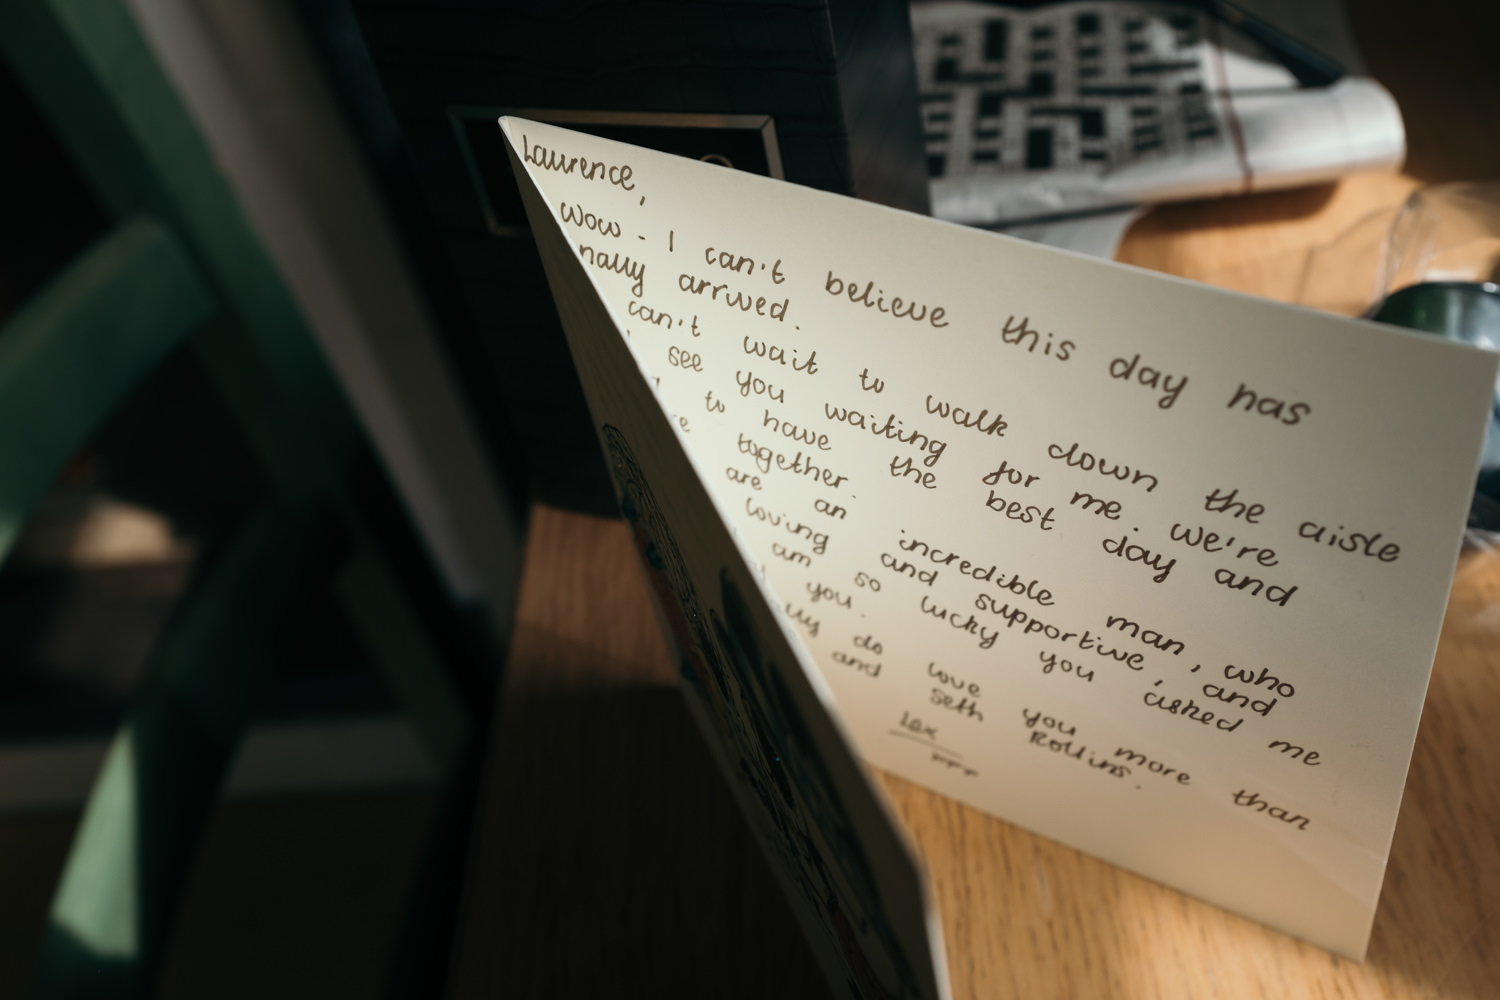 Laurence,
wow - I can't believe this day has
finally arrived.
can't wait to walk down the aisle
see you waiting for me. we're
to have the best day and
together.
are an incredible man, who
loving and supportive, and
am so lucky you asked me
you.
do love you more than
and Seth Rollins.
Lex